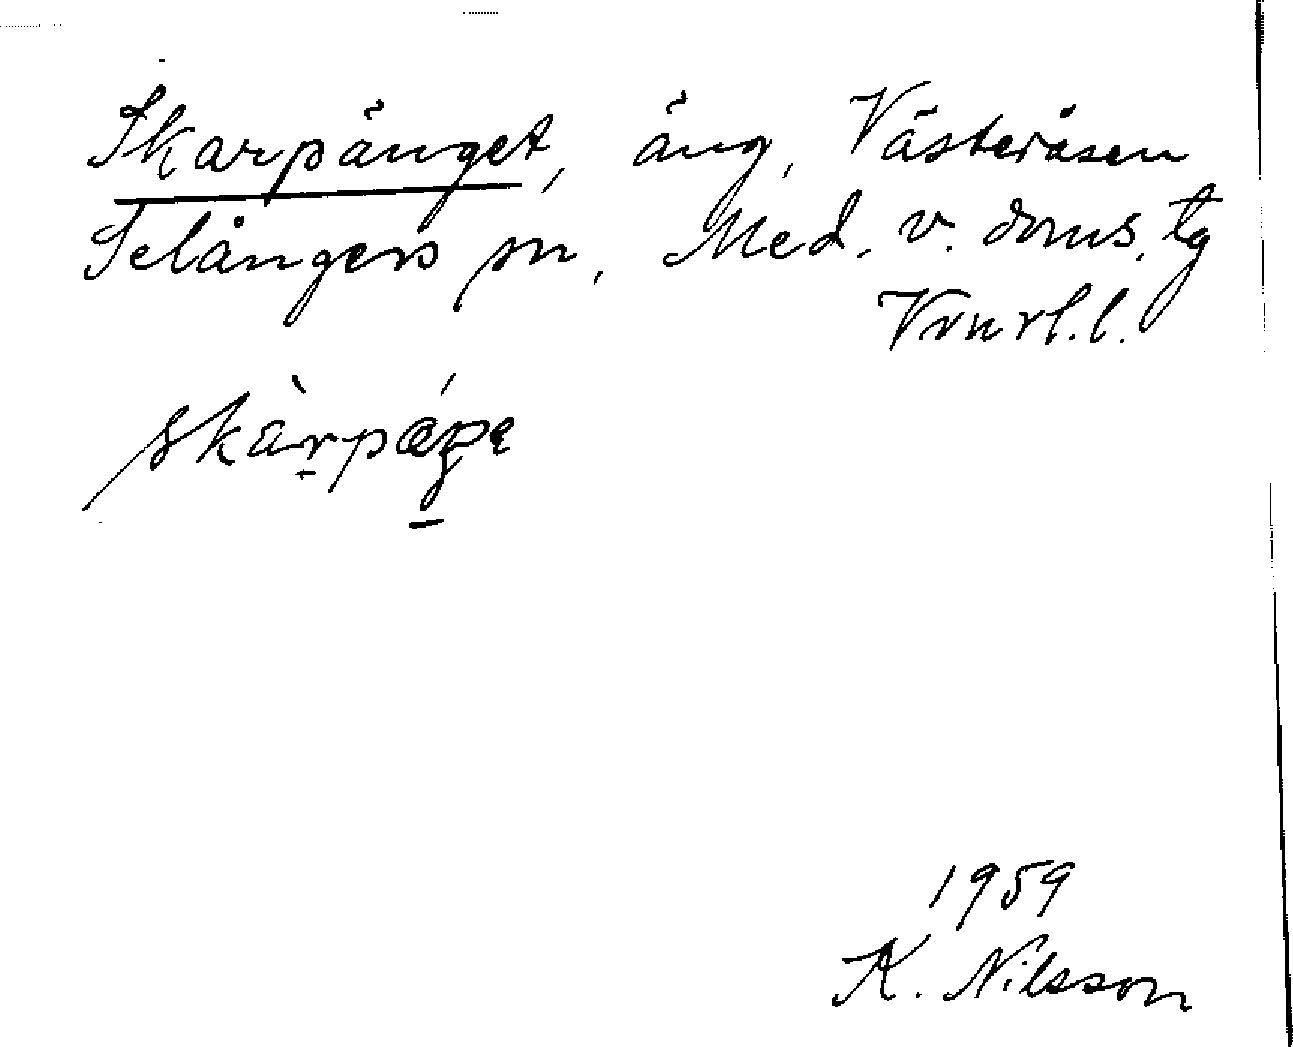 Skarpänget, äng, Västeråsen
Selångers sn, Med. v. doms. tg
Vrnrl.l.
1959
K. Nilsson